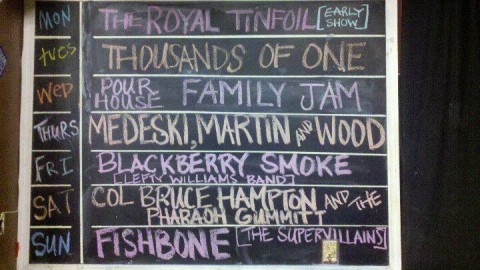 MON THE ROYAL TINFOIL [EARLY SHOW]
TUES THOUSANDS OF ONE
WED POUR HOUSE FAMILY JAM
THURS MEDESKI, MARTIN AND WOOD
FRI BLACKBERRY SMOKE
[LEFTY WILLIAMS BAND]
SAT COL BRUCE HAMPTON AND THE
PHARAOH GUMMITT
SUN FISHBONE [THE SUPERVILLAINS]